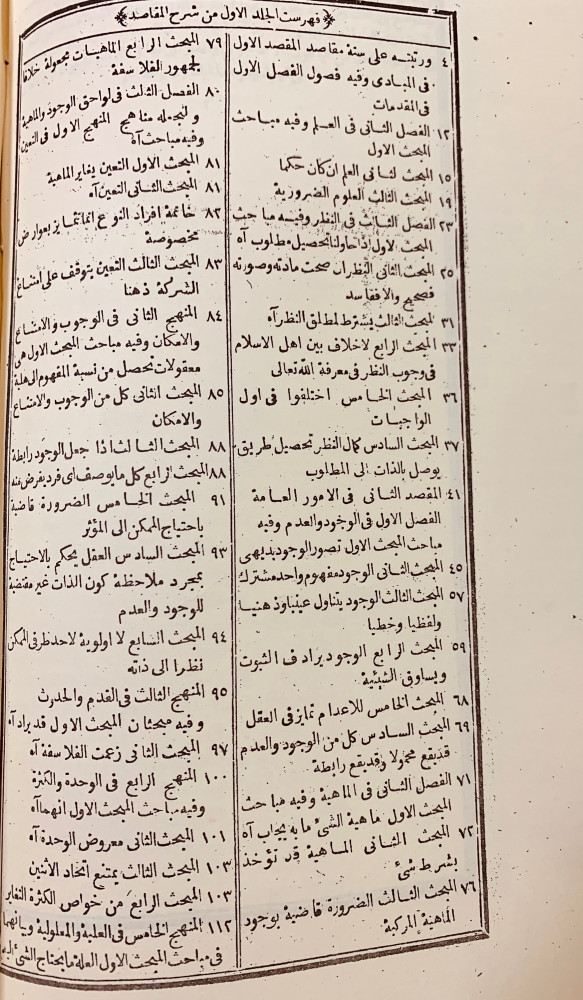 فهرست الجلد الاول من شرح المقاصد
٤ ورتبته على ستة مقاصد المقصد الاول
فى المبادى وفيه فصول الفصل الاول
فى المقدمات
١٢ الفصل الثانى فى العلم وفيه مباحث
المبحث الاول
١٥ المبحث الثانى العلم ان كان حكما
١٩ المبحث الثالث العلوم الضرورية
٢٣ الفصل الثالث فى النظر وفيه مباحث
المبحث الاول اذا حاولنا تحصيل مطلوب آه
٢٥ المبحث الثانى النظر ان صحت مادته وصورته
فصحيح والا ففاسد
٣١ المبحث الثالث يشترط لمطلق النظر آه
٣٣ المبحث الرابع لاخلاف بين اهل الاسلام
فى وجوب النظر فى معرفة الله تعالى
٣٦ المبحث الخامس اختلفوا فى اول
الواجبات
٣٧ المبحث السادس كمال النظر تحصيل طريق
يوصل بالذات الى المطلوب
٤١ المقصد الثانى فى الامور العامة
الفصل الاول فى الوجود والعدم وفيه
مباحث المبحث الاول تصور الوجود بديهى
٤٥ المبحث الثانى الوجود مفهوم واحد مشترك
٥٧ المبحث الثالث الوجود يتناول عينيا وذهنيا
ولفظيا وخطيا
٥٩ المبحث الرابع الوجود يرادف الثبوت
ويساوق الشيئية
٦٨ المبحث الخامس للاعدام تمايز فى العقل
٦٩ المبحث السادس كل من الوجود والعدم
قد يقع محمولا وقد يقع رابطة
٧١ الفصل الثانى فى الماهية وفيه مباحث
المبحث الاول ماهية الشئ ما به يجاب آه
٧٢ المبحث الثانى الماهية قد تؤخذ
بشرط شئ
٧٦ المبحث الثالث الضرورة قاضية بوجود
الماهية المركبة
٧٩ المبحث الرابع الماهيات مجعولة خلافا
لجمهور الفلاسفة
٨٠ الفصل الثالث فى لواحق الوجود والماهية
ولنجعله مناهج المنهج الاول فى التعين
وفيه مباحث آه
٨١ المبحث الاول التعين يغاير الماهية
٨١ المبحث الثانى التعين آه
٨٢ خاتمة افراد النوع انما تتمايز بعوارض
مخصوصة
٨٣ المبحث الثالث التعين يتوقف على امتناع
الشركة ذهنا
٨٤ المنهج الثانى فى الوجوب والامتناع
والامكان وفيه مباحث المبحث الاول هى
معقولات تحصل من نسبة المفهوم الى هلية
٨٥ المبحث الثانى كل من الوجوب والامتناع
والامكان
٨٨ المبحث الثالث اذا جعل الوجود رابطة
٨٨ المبحث الرابع كل ما يوصف اى فرد يفرض منه
٩١ المبحث الخامس الضرورة قاضية
باحتياج الممكن الى المؤثر
٩٣ المبحث السادس العقل يحكم بالاحتياج
بمجرد ملاحظة كون الذات غير مقتضية
للوجود والعدم
٩٤ المبحث السابع لا اولوية لاحد طرفى الممكن
نظرا الى ذاته
٩٥ المنهج الثالث فى القدم والحدوث
وفيه مبحثان المبحث الاول قد يراد آه
٩٧ المبحث الثانى زعمت الفلاسفة آه
١٠٠ المنهج الرابع فى الوحدة والكثرة
وفيه مباحث المبحث الاول انهما آه
١٠١ المبحث الثانى معروض الوحدة آه
١٠٣ المبحث الثالث يمتنع اتحاد الاثنين
١٠٣ المبحث الرابع من خواص الكثرة التغاير
١١٢ المنهج الخامس فى العلية والمعلولية وبيانهما
فى مباحث المبحث الاول العلة ما يحتاج الشئ اليه